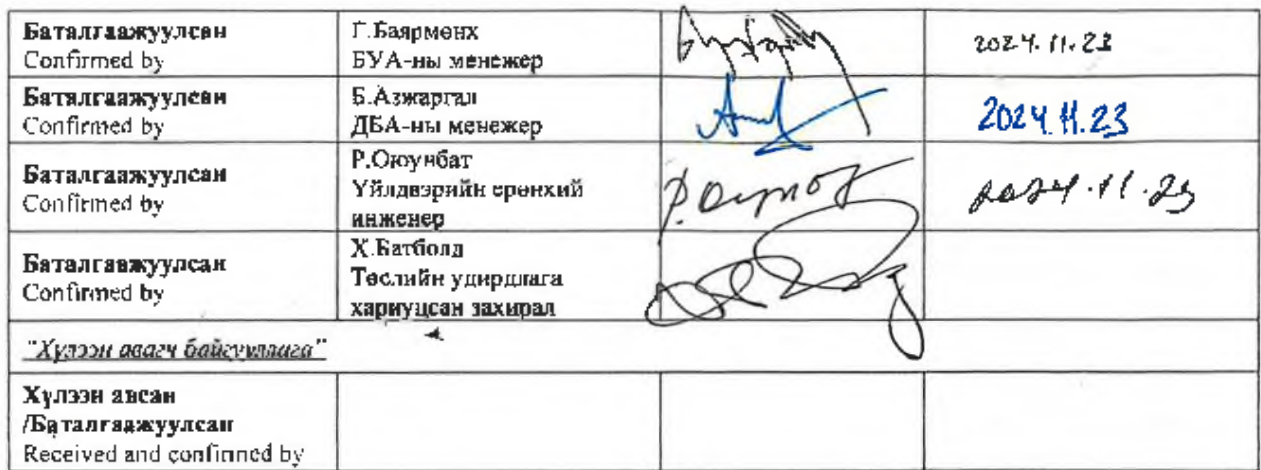 Баталгаажуулсан
Confirmed by
Г.Баярмөнх
БУА-ны менежер
2024.11.23
Баталгаажуулсан
Confirmed by
Б.Азжаргал
ДБА-ны менежер
2024.11.23
Баталгаажуулсан
Confirmed by
Р.Оюунбат
Үйлдвэрийн ерөнхий
инженер
2024.11.23
Баталгаажуулсан
Confirmed by
Х.Батболд
Төслийн удирдлага
хариуцсан захирал
"Хүлээн авагч байгууллага"
Хүлээн авсан
/Баталгаажуулсан
Received and confirmed by